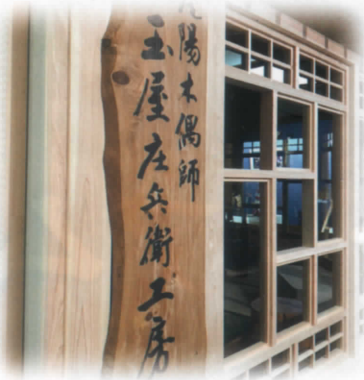 陽木偶師
玉屋庄兵衛工房